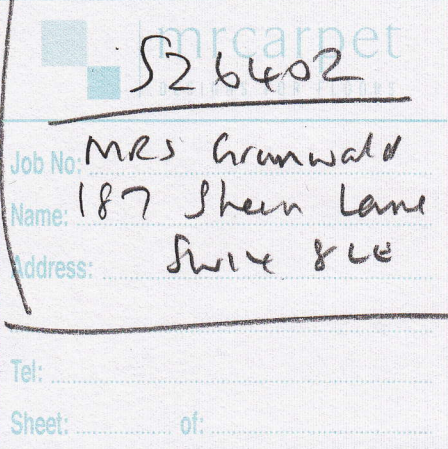 mrcarpet
S26402
Job No: MRS Grunwald
Name: 187 Sheen Lane
Address: SW14 8LE
Tel:
Sheet: of: